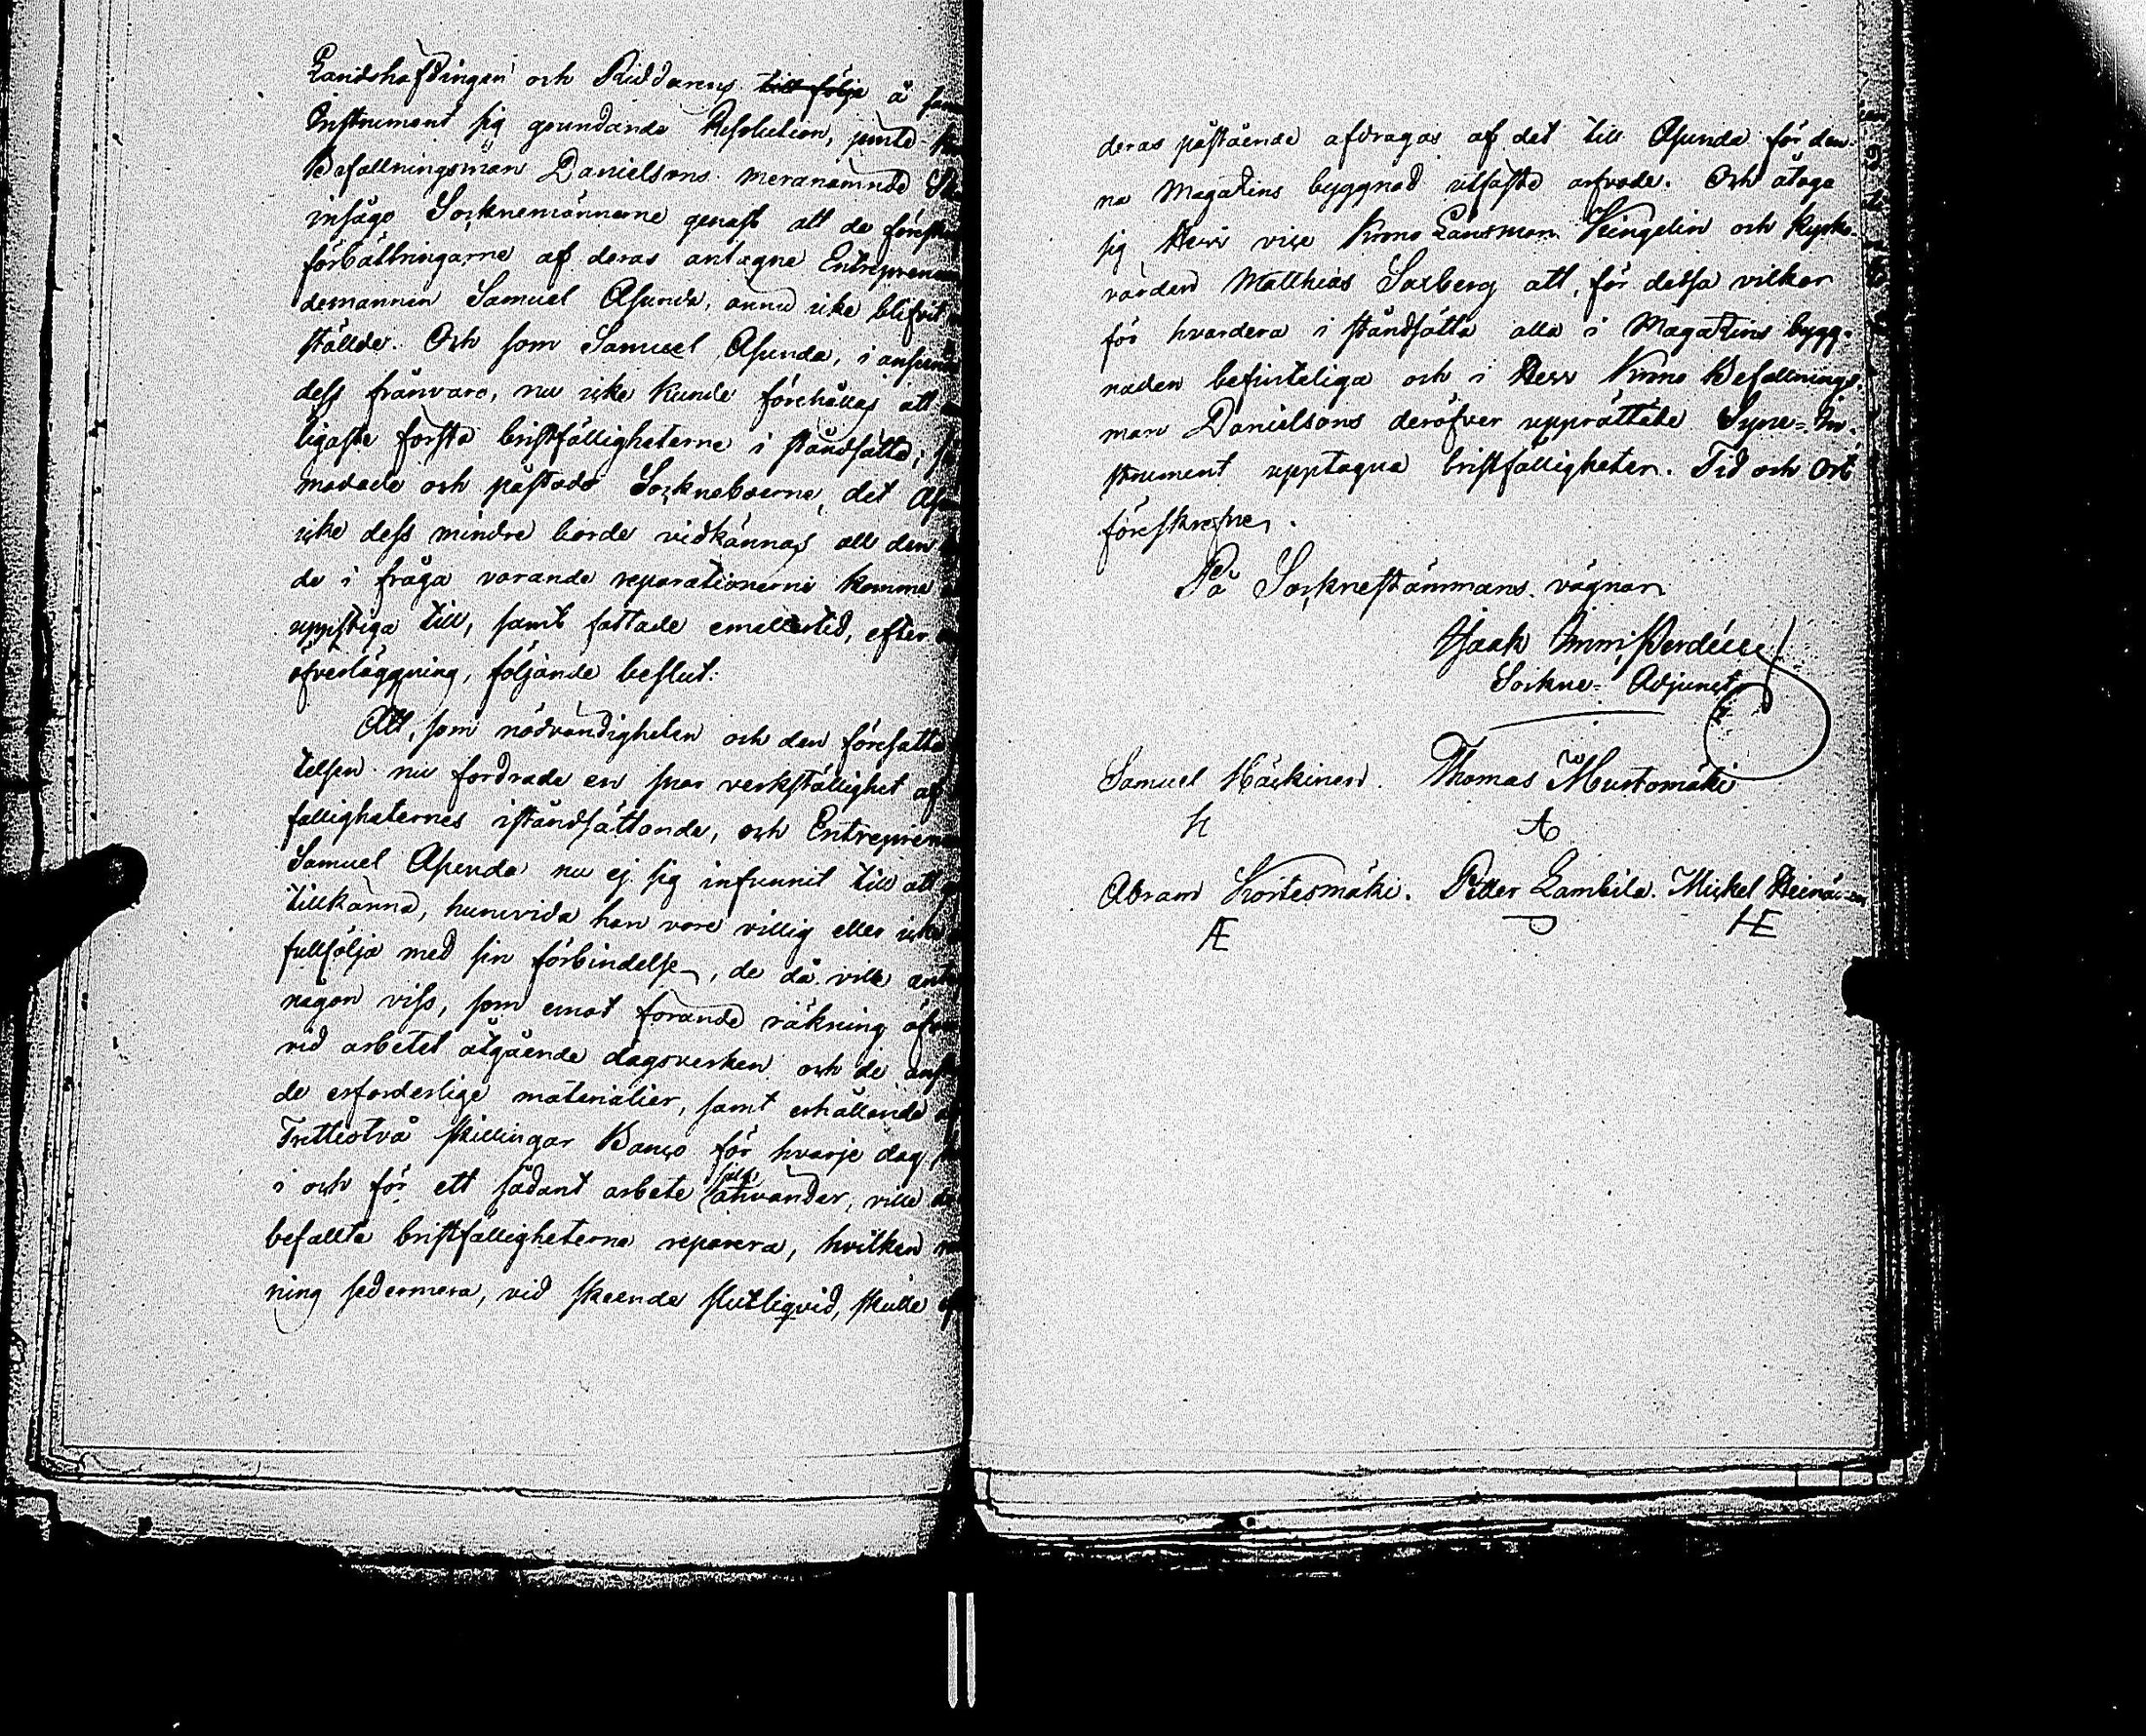 Landshöfdingen och Riddarens till följe å sam
Instrument sig grundande Resolution, jemte
Befallningsman Danielsons meranämnde
insågo Socknemännerne genast att de föresk
förbättringarne af deras antagne Entrepreneu
demannen Samuel Asunda, ännu icke blifvit
ställde. Och som Samuel Asunda, i anseende
dess frånvaro, nu icke kunde förehållas att
ligaste försätta bristfälligheterne i ståndsätta,
modade och påstodo Sockneboerne, det As
icke dess mindre borde vidkännas all den
de i fråga varande reparationerne komme
uppstiga till, samt fattade emellertid, efter
öfverläggning, följande beslut:
Att, som nödvändigheten och den förefatta
telsen nu fordrade en snar verkställighet af
fälligheternes iståndsättande, och Entreprene
Samuel Asunda nu ej sig infunnit till att
tillkänna, huruvida han vore villig eller icke
fullfölja med sin förbindelse, de då ville anta
någon viss, som emot förande räkning öfver
vid arbetet åtgående dagsverken och de anska
de erforderlige materialier, samt erhållande
Trettiotvå skillingar Banco för hvarje dag
i och för ett sådant arbete sålt använder, ville
befallta bristfälligheterna reparera, hvilken
ning sedermera, vid skeende slutliqvid, skulle
deras påstående afdragas af det till Asunda för den-
na Magazins byggnad utfäste arfvode. Och åtogo
sig Herr vice Krono Länsman Kingelin och Kyrko-
värden Matthias Saxberg att, för dessa vilkor
för hvardera i ståndsätta alla i Magazins bygg-
naden befinteliga och i Herr Krono Befallnings-
man Danielsons deröfver upprättade Syne-In-
strument upptagna bristfälligheter. Tid och Ort
föreskrefne.
På Socknestämmans vägnar
Isaak
Sockne-Adjunct
Samuel Häckinen. Thomas Mustomäki
H
Abram Kortesmäki. Petter Lambila. Mickel Heinäi
Æ HE